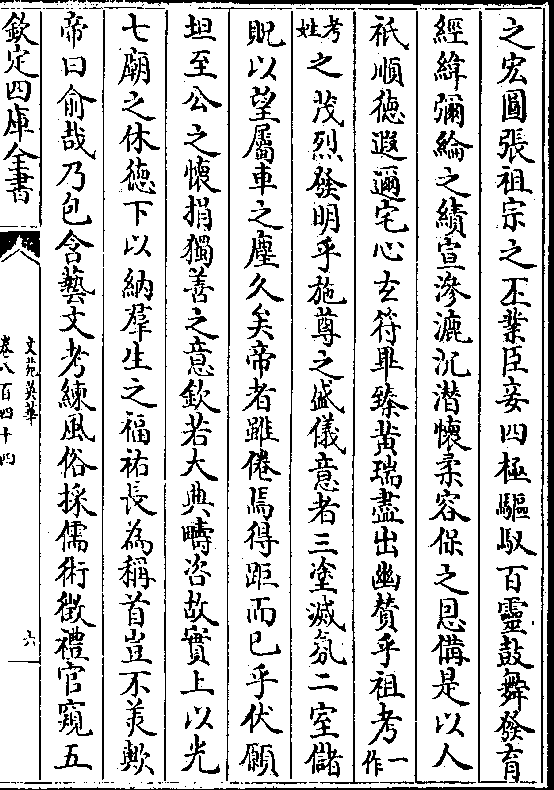 之宏圓張祖宗之丕業臣妾四極驅馭百靈鼓舞發育
經緯彌綸之績宣滲漉沉潛懷柔容保之恩備是以人
祇順德遐邇宅心玄符畢臻黃瑞盡出幽賛乎祖考一作
考姓之茂烈發明乎施尊之盛儀意者三塗滅氛二室儲
貺以望屬車之塵久矣帝者雖倦焉得距而已乎伏願
坦至公之懷捐獨善之意欽若大典疇咨故實上以光
七廟之休德下以納羣生之福祐長為稱首豈不羙歟
帝曰俞哉乃包含藝文考練風俗採儒術徵禮官窺五
欽定四庫全書
文苑英華
卷八百四十四
六